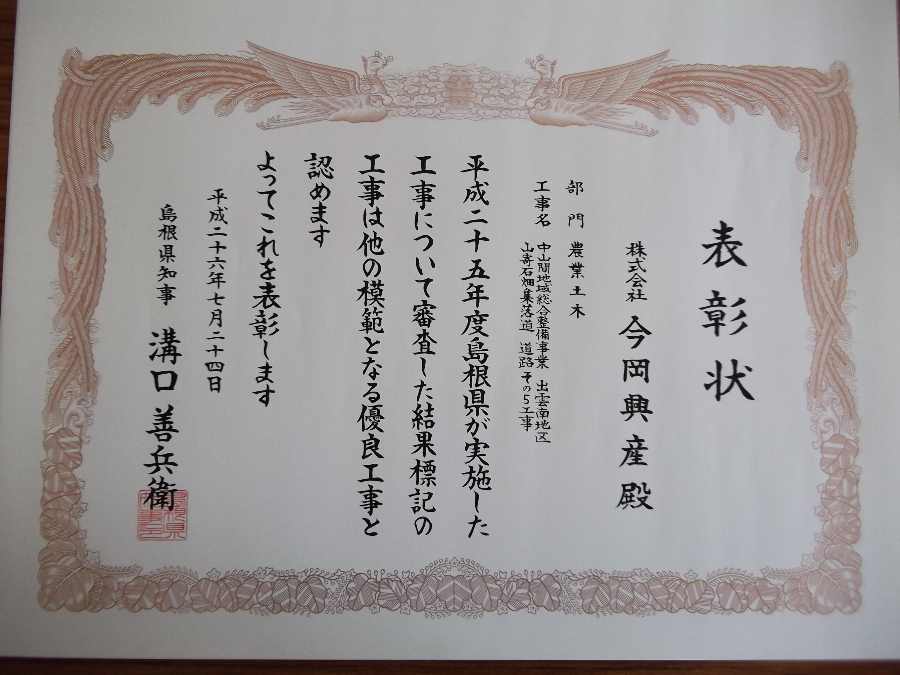 表彰状
株式会社 今岡興産殿
部門 農業土木
工事名 中山間地域総合整備事業 出雲南地区
山寄石畑集落道 道路その5工事
平成二十五年度島根県が実施した
工事について審査した結果標記の
工事は他の模範となる優良工事と
認めます
よってこれを表彰します
平成二十六年七月二十四日
島根県知事 溝口善兵衛